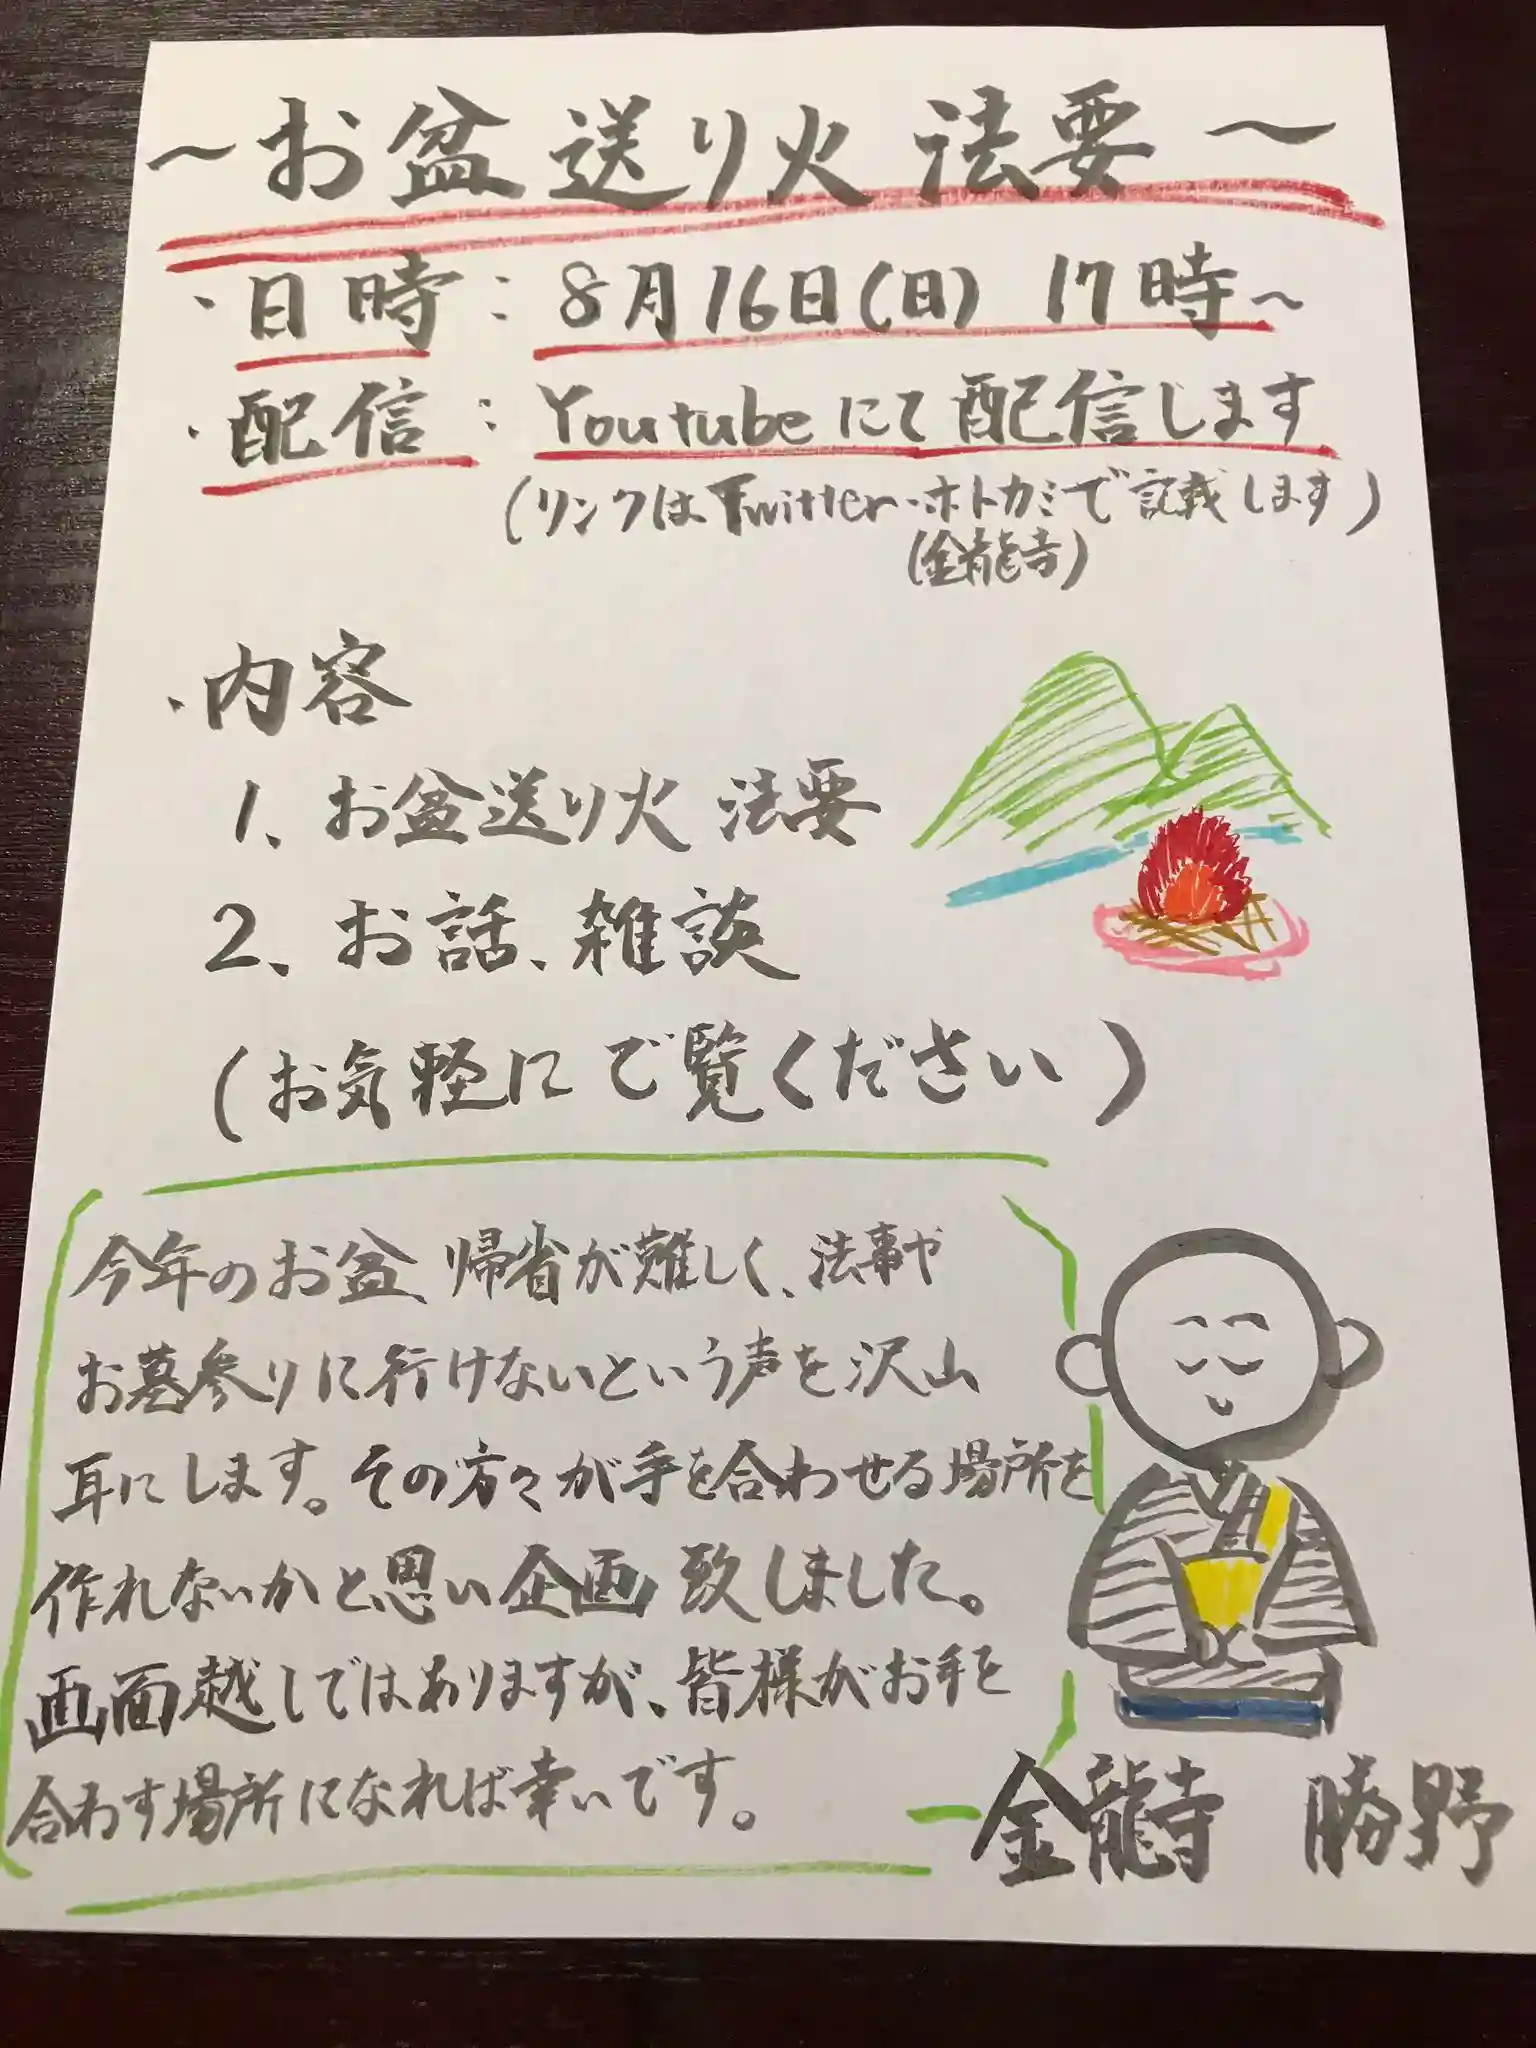 ～お盆 送り火 法要～
・日時：8月16日(日) 17時～
・配信：Youtubeにて配信します
(リンクはTwitter・ホトカミで記載します)
(金龍寺)
・内容
1、お盆送り火 法要
2、お話、雑談
(お気軽にご覧ください)
今年のお盆、帰省が難しく、法事や
お墓参りに行けないという声を沢山
耳にします。その方々が手を合わせる場所を
作れないかと思い企画致しました。
画面越しではありますが、皆様がお手を
合わす場所になれば幸いです。
金龍寺 勝野